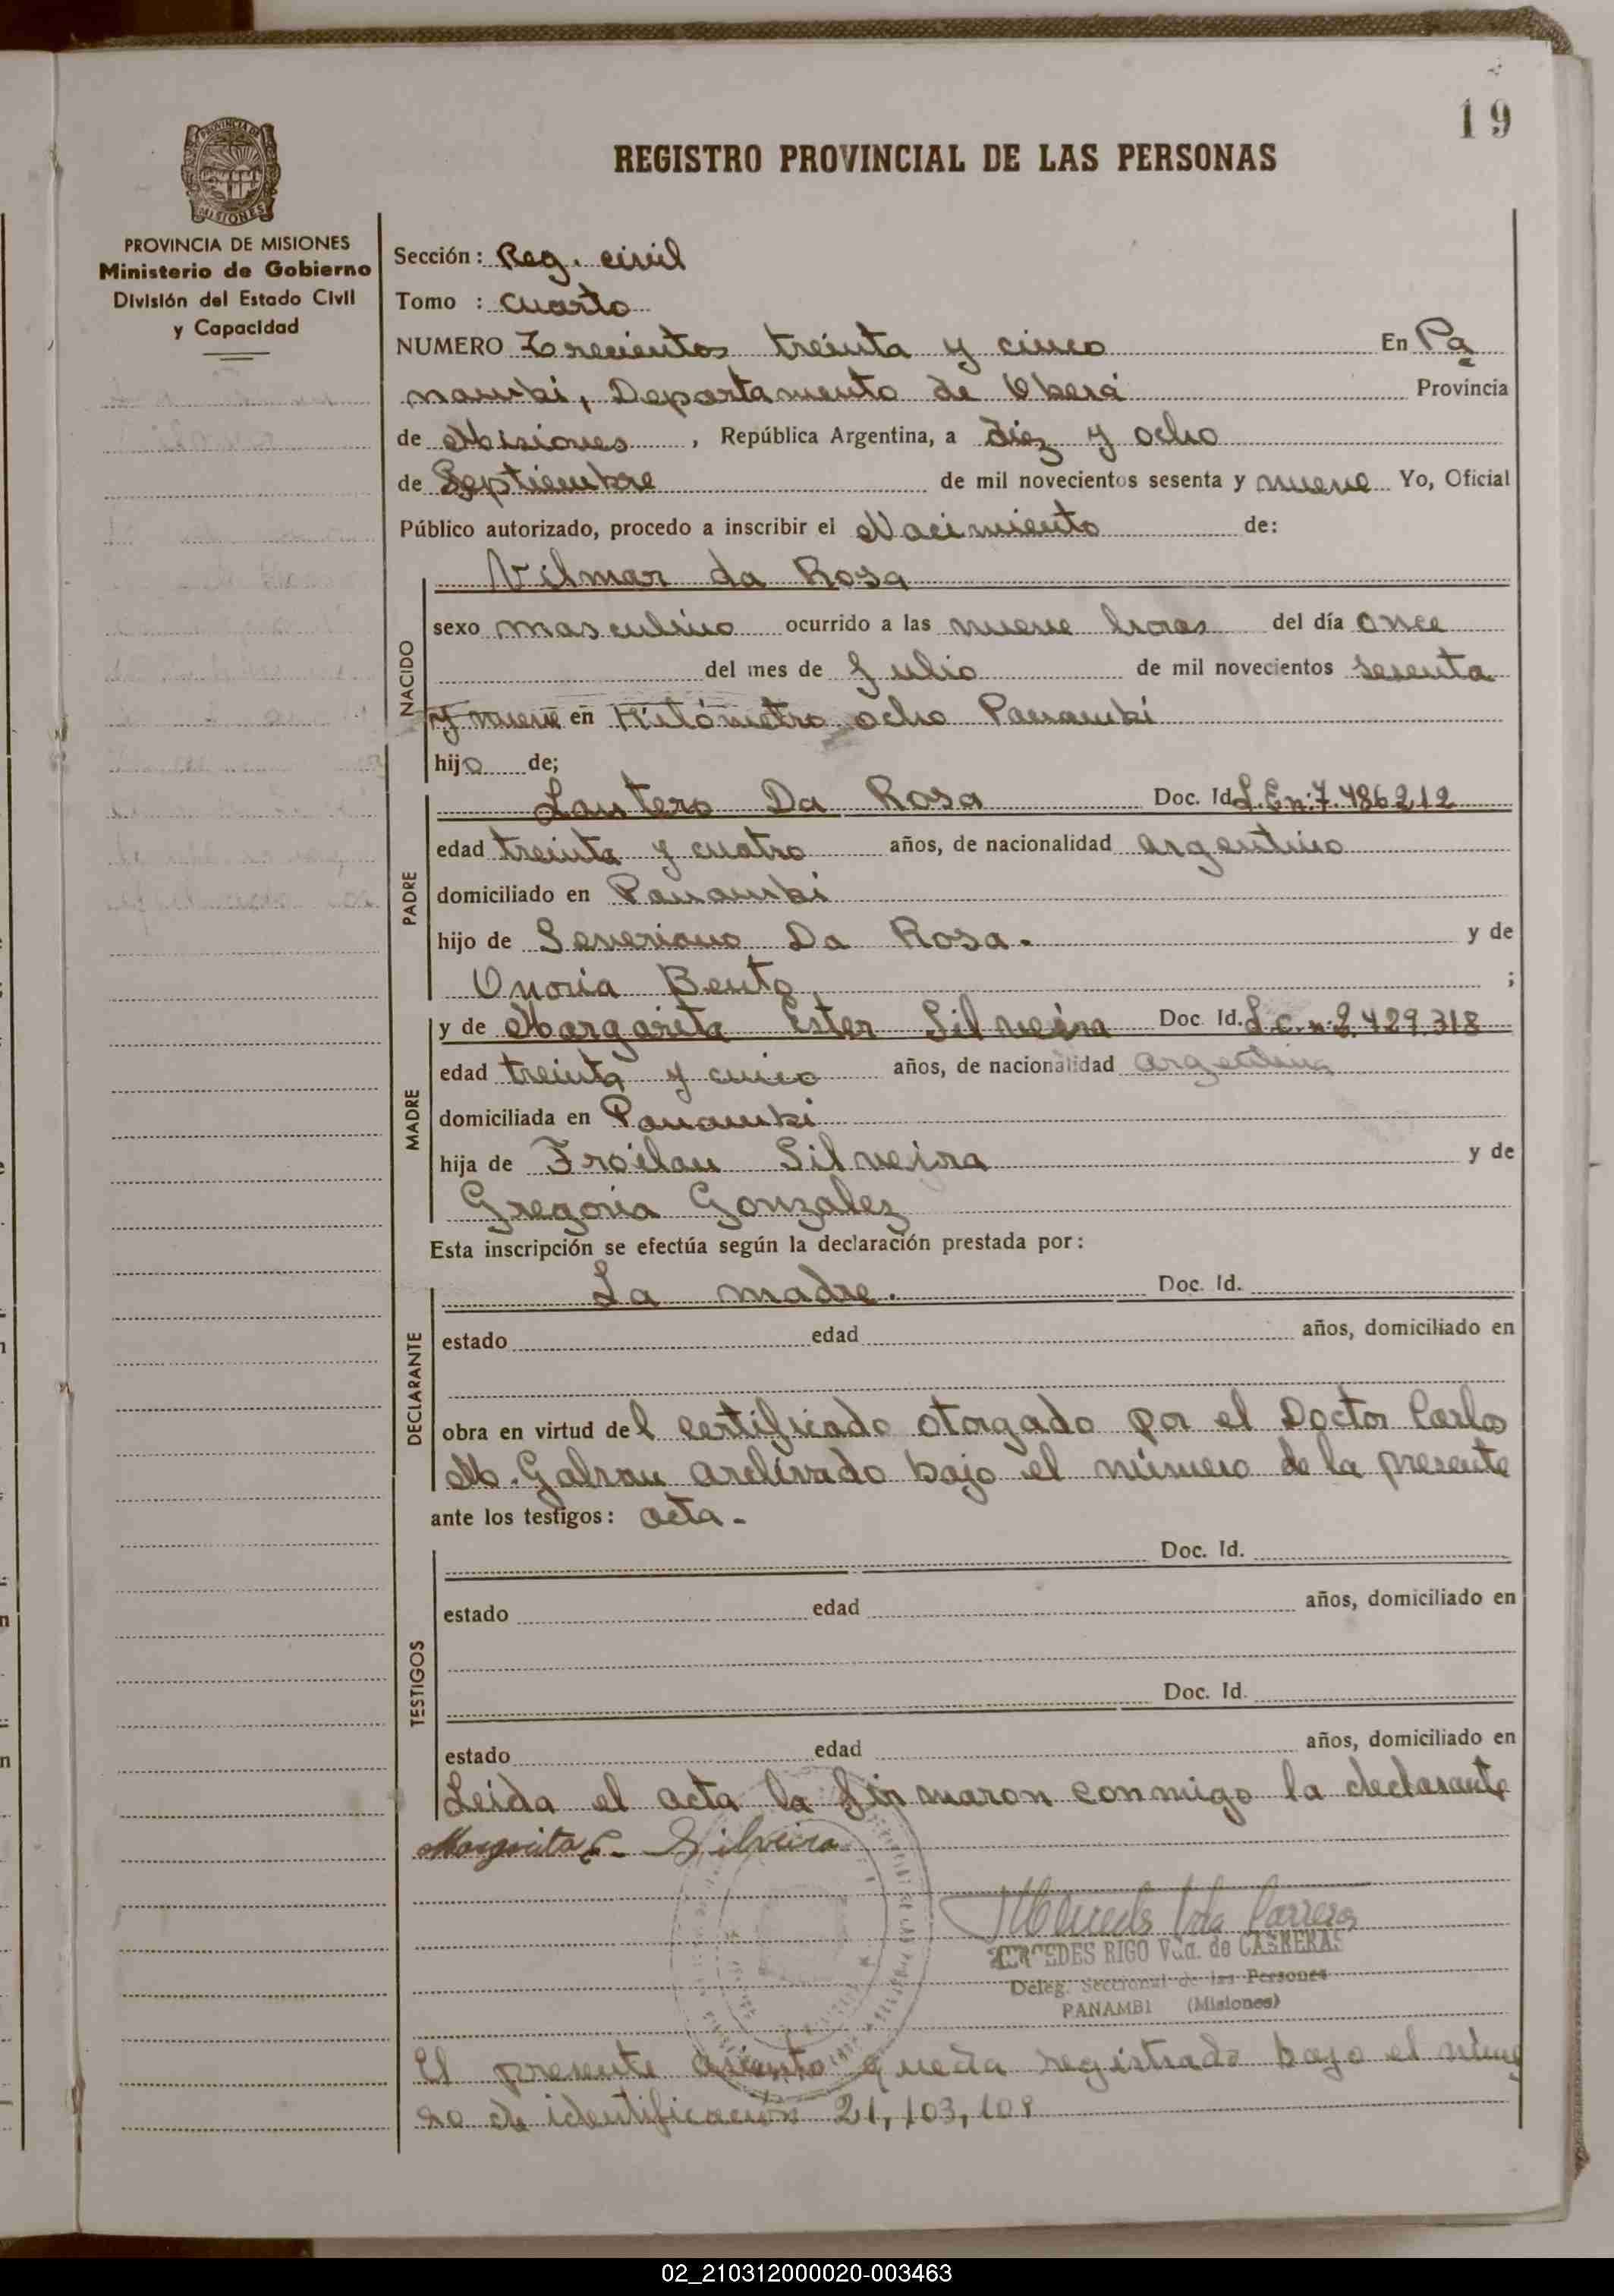 19
REGISTRO PROVINCIAL DE LAS PERSONAS
PROVINCIA DE MISIONES
Ministerio de Gobierno
División del Estado Civil
y Capacidad
Sección: Reg. civil
Tomo : Cuarto
NUMERO Trecientos treinta y cinco En Pa
nambi, Departamento de Oberá Provincia
de Misiones, República Argentina, a diez y ocho
de Septiembre de mil novecientos sesenta y nueve Yo, Oficial
Público autorizado, procedo a inscribir el Nacimiento de:
NACIDO
Vilmar da Rosa
sexo masculino ocurrido a las nueve horas del día once
del mes de Julio de mil novecientos sesenta
y nueve en Kilómetro ocho Panambi
hijo de;
PADRE
Lautero Da Rosa Doc. Id. L.En:7.486212
edad treinta y cuatro años, de nacionalidad argentino
domiciliado en Panambi
hijo de Severiano Da Rosa. y de
Onoria Bento ;
MADRE
y de Margarita Ester Silveira Doc. Id. L.C.n:2.429.318
edad treinta y cinco años, de nacionalidad argentina
domiciliada en Panambi
hija de Froilan Silveira y de
Gregoria Gonzalez
Esta inscripción se efectúa según la declaración prestada por:
DECLARANTE
La madre. Doc. Id.
estado edad años, domiciliado en
obra en virtud del certificado otorgado por el Doctor Carlos
M. archivado bajo el número de la presente
ante los testigos: acta.-
TESTIGOS
Doc. Id.
estado edad años, domiciliado en
Doc. Id.
estado edad años, domiciliado en
Leida el acta la firmaron conmigo la declarante
Margarita E. Silveira
MERCEDES RIGO Vda. de CABRERAS
Deleg. Seccional de las Personas
PANAMBI (Misiones)
El presente asiento queda registrado bajo el núme
ro de identificación 21,103,108
02_210312000020-003463